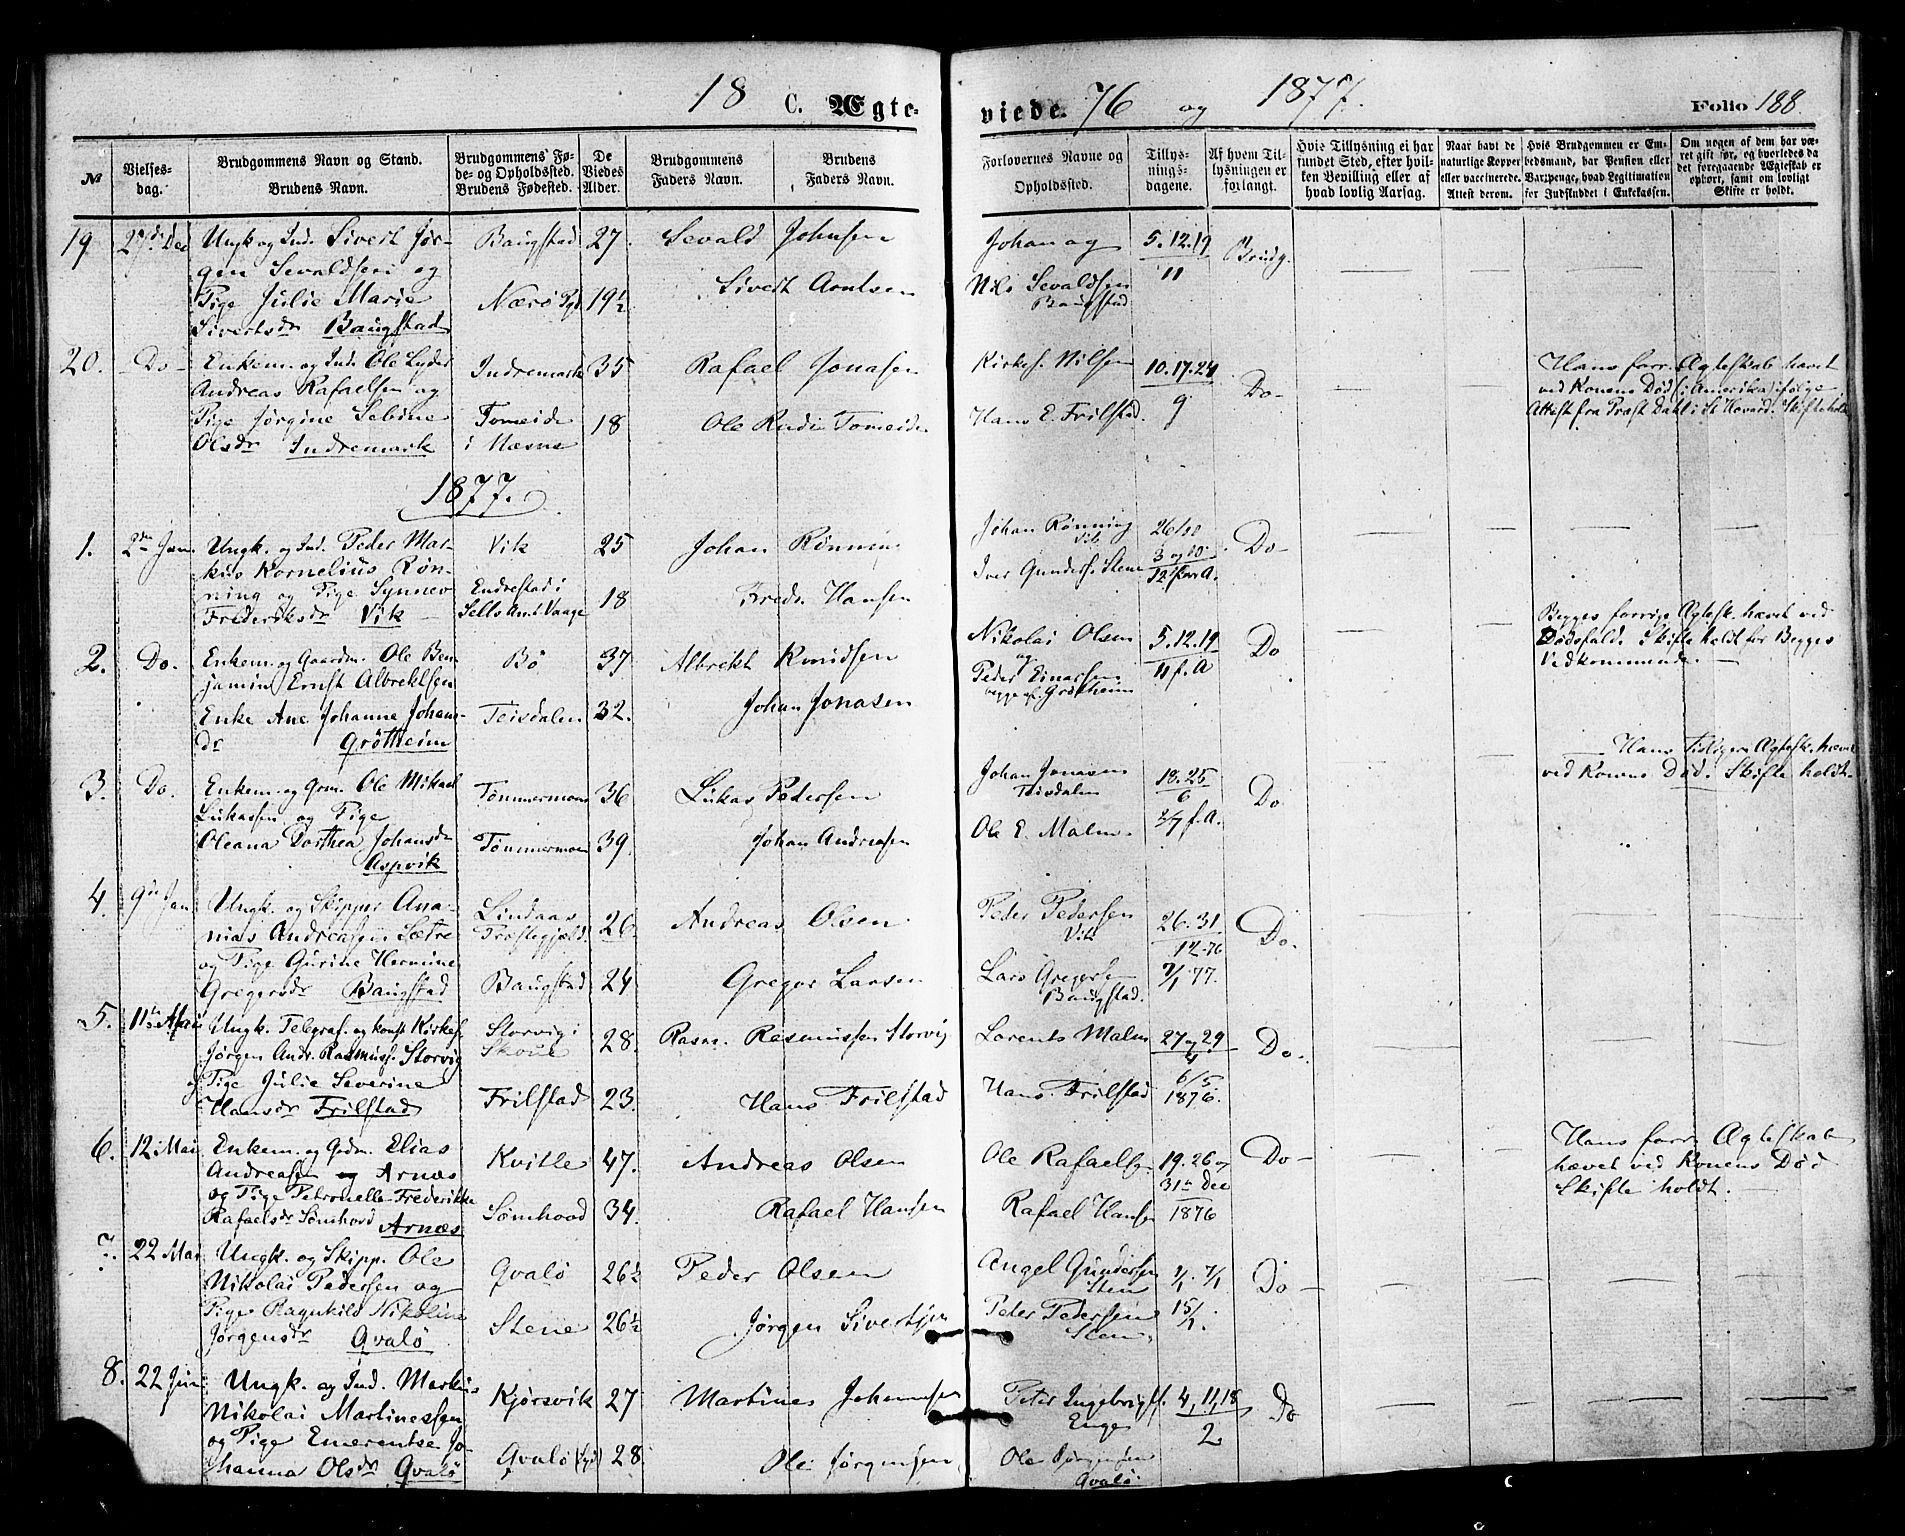 18 C. Ægte-
viede. 76 og 1877. Folio 188.
No
Vielses-
dag.
Brudgommens Navn og Stand.
Brudens Navn.
Brudgommens Fø-
de- og Opholdssted.
Brudens Fødested.
De
Viedes
Alder.
Brudgommens
Faders Navn.
Brudens
Faders Navn.
Forlovernes Navne og
Opholdssted.
Tillys-
nings-
dagene.
Af hvem Til-
lysningen er
forlangt.
Hvis Tillysning ei har
fundet Sted, efter hvil-
ken Bevilling eller af
hvad lovlig Aarsag.
Naar havt de
naturlige Kopper
eller vaccinerede.
Attest derom.
Hvis Brudgommen er Em-
bedsmand, har Pension eller
Vartpenge, hvad Legitimation
for Indskuddet i Enkekassen.
Om nogen af dem har væ-
ret gift før, og hvorledes da
det foregaaende Ægteskab er
ophørt, samt om lovligt
Skifte er holdt.
19 27de Dec Ungk og Ind. Sivert Jør- Baugstad 27. Sevald Johnsen Johan og 5.12.19 Brudg.
gen Sevaldsen og Nils Sevaldsen 11
Pige Julie Marie Nærø Pgd 19½ Sivert Arntsen Baugstad
Sivertsdr Baugstad
20. Do Enkem. og Ind. Ole Lyder Indremark 35 Rafael Jonasen Kirkes. Nilsen 10.17.24 Do Hans forr. Ægteskab hævet
Andreas Rafaelsen og 9 ved Konens Død (i Amerika) ifølge
Pige Jørgine Sebine Tomeide 18 Ole Tomeide Hans E. Frilstad. Attest fra Præst Dahl i Skifte holdt
Olsdr Indremark i Næsne
1877.
1. 2den Jan. Ungk. og Ind. Peder Mar- Vik 25 Johan Rønning Johan Rønning 26/10 Do
kus Kornelius Røn- Vik 3 og 10
ning og Pige Synnev Endrestad i 18 Fredr. Hansen Iver Gunders. Stene
Frederiksdr Vik Sells Amt Vaage
2. Do. Enkem. og Gaardm. Ole Ben- Bø 37 Albrekt Knudsen Nikolai Olsen 5.12.19 Do Begges forrige Ægtesk. hævet ved
jamin Ernst Albrektsen og 11 f. A Dødsfald. Skifte holdt for Begges
Peder Einarsen Vedkommende.
Enke Ane Johanne Johans- Teisdalen 32. Johan Jonasen begge paa Grøtheim
dr Grøtheim
3. Do. Enkem. og Grm. Ole Mikael Tømmermoen 36 Lukas Pedersen Johan Jonasen 18.25 Do Hans Tidligere Ægtesk. hævet
Lukassen og Pige Teisdalen 6 ved Konens Død. Skifte holdt.
Oleana Dorthea Johansdr Tømmermoen 39. Johan Andreasen Ole E. Malm.
Aspvik
4. 9de Jan Ungk. og Skipper Ana- Lindaas 26. Andreas Olsen Peder Pedersen 26.31 Do.
nias Andreassen Sætre Præstegjæld. Vik 12-76
og Pige Gurine Hermine Baugstad 24 Gregor Larsen Lars Gregers. 7/1 77.
Gregersdr Baugstad Baugstad.
5. 11te Mai Ungk. Telegraf. og konst Kirkes. Storvig i 28. Rasm. Rasmussen Storvig Lorents Malm 27 og 29 Do.
Jørgen Andr. Rasmuss. Storvig Skoue 4
og Pige Julie Severine Frilstad 23. Hans Frilstad Hans Frilstad 6/5
Hansdr Frilstad 1876.
6. 12 Mai Enkem. og Gdm. Elias Kvitle 47. Andreas Olsen Ole Rafaelsen 19.26 og Do Hans forr. Ægteskab
Andreasen Arnæs 31te Dec hævet ved Konens Død
og Pige Petronella Frederikke Sømhovd 34. Rafael Hansen Rafael Hansen 1876 Skifte holdt.
Rafaelsdr Sømhovd Arnæs
7. 22 Mai Ungk. og Skipp. Ole Qvalø 26½ Peder Olsen Angel Gundersen 7/1 Do
Nikolai Pedersen og Sten
Pige Ragnhild Nikoline Stene 26½ Jørgen Sivertsen Peter Pedersen 15/1.
Jørgensdr Qvalø Sten
8. 22 Juni Ungk. og Ind. Markus Kjørsvik 27 Martines Johannesen Peter Ingebrigts. 4, 11, 18 Do
Nikolai Martinessen Enge 2
og Pige Emerentse Jo- Qvalø 28. Ole Jørgensen Ole Jørgensen
hanna Olsdr Qvalø Qvalø